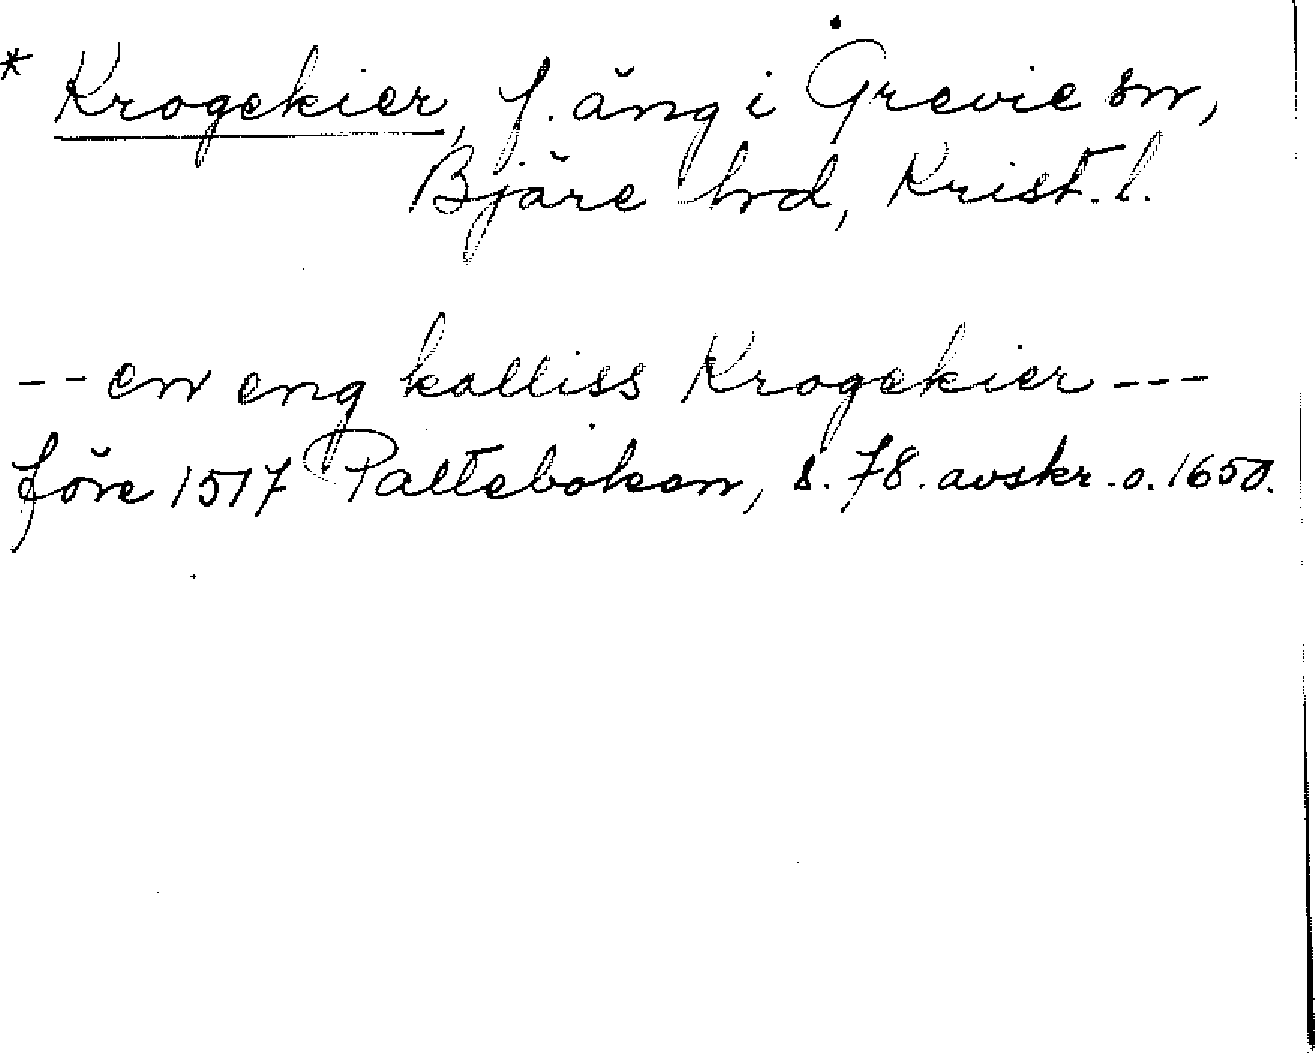 * Krogekier, f. äng i Grevie sn,
Bjäre hrd, Krist. l.
-- en eng kalliss Krogekier ---
före 1517 Palteboken, s. 78. avskr. o. 1650.